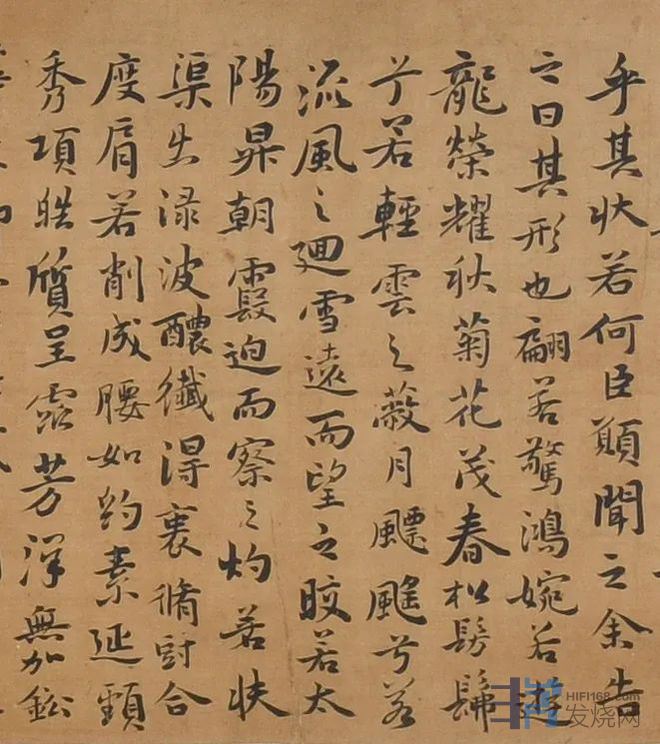 乎其状若何臣願聞之余告
之曰其形也翩若驚鴻婉若遊
龍榮耀秋菊花茂春松髣髴
兮若輕雲之蔽月飄颻兮若
流風之廻雪遠而望之皎若太
陽昇朝霞迫而察之灼若扶
渠出渌波醲纖得衷脩短合
度肩若削成腰如約素延頸
秀項皓質呈露芳澤無加鉛
HIFI168.com
发烧网